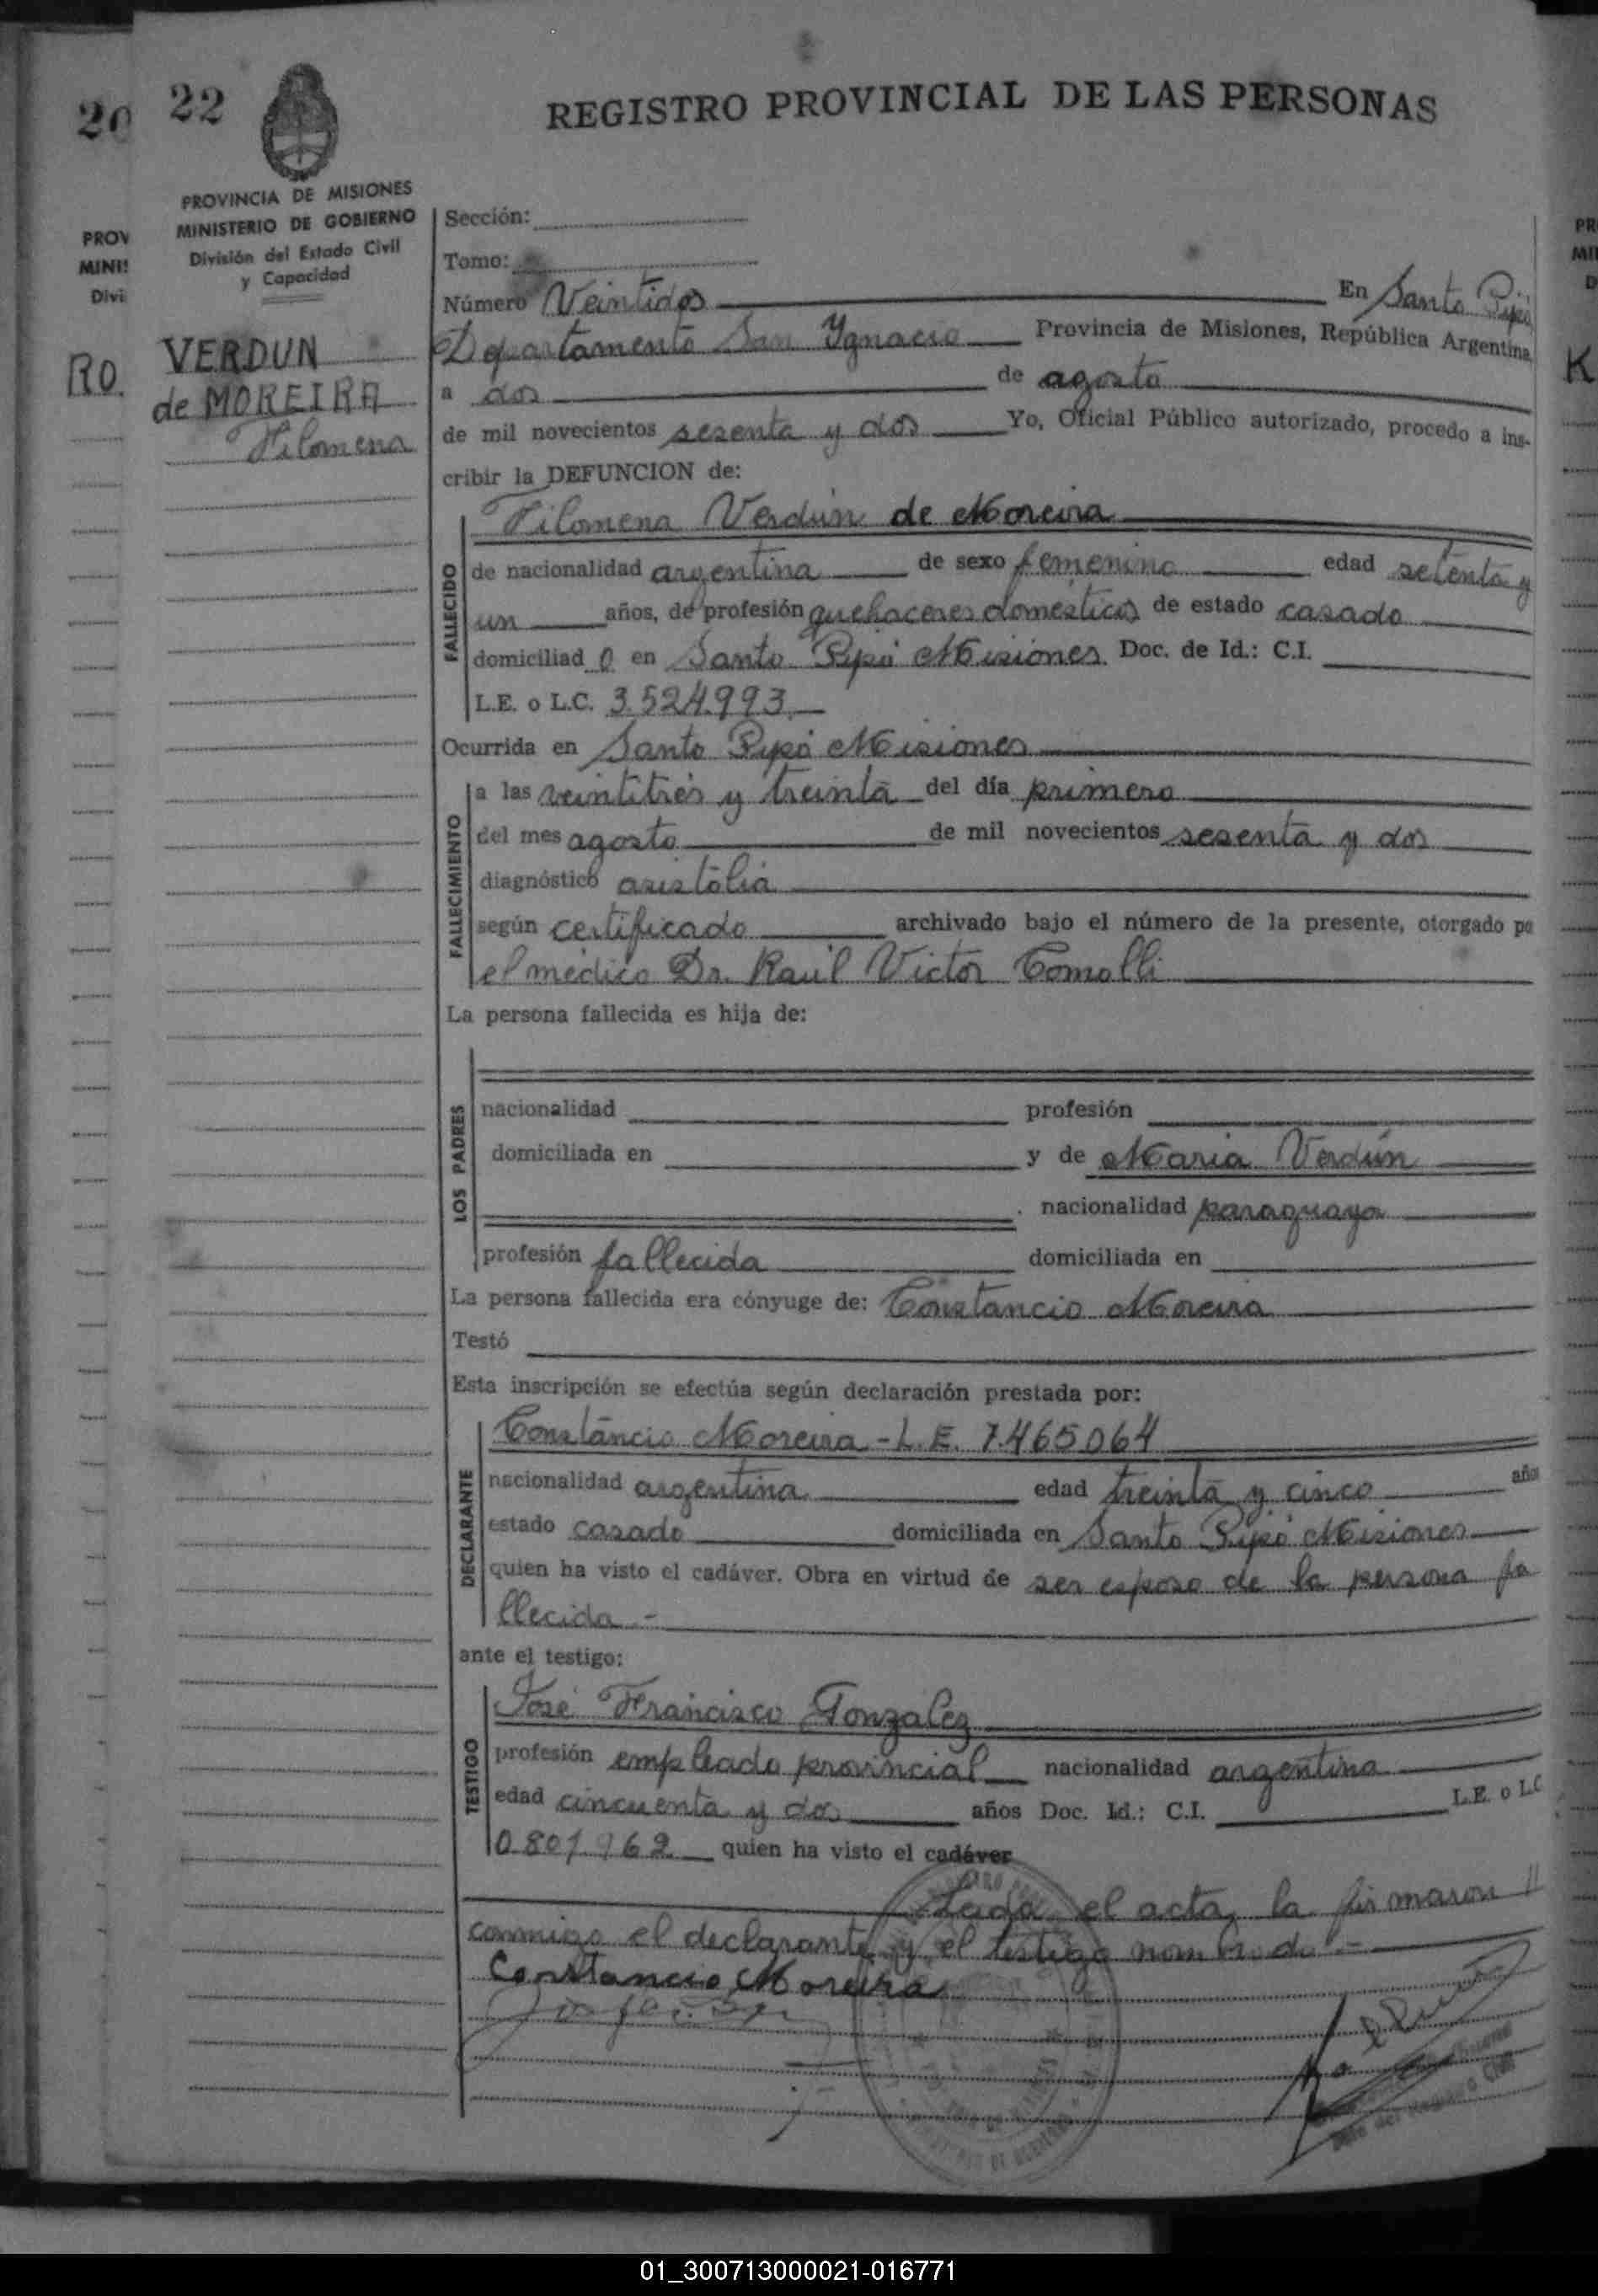 20
22
REGISTRO PROVINCIAL DE LAS PERSONAS
PROVINCIA DE MISIONES
MINISTERIO DE GOBIERNO
División del Estado Civil
y Capacidad
PROV
MINI
Divi
RO.
VERDUN
de MOREIRA
Filomena
Sección:
Tomo:
Número Veintidos En Santo Pipó
Departamento San Ygnacio Provincia de Misiones, República Argentina,
a dos de agosto
de mil novecientos sesenta y dos Yo, Oficial Público autorizado, procedo a ins-
cribir la DEFUNCION de:
FALLECIDO
Filomena Verdún de Moreira
de nacionalidad argentina de sexo femenino edad setenta y
un años, de profesión quehaceres domésticos de estado casado
domiciliad o en Santo Pipó Misiones Doc. de Id.: C.I.
L.E. o L.C. 3.524.993.
Ocurrida en Santo Pipó Misiones
FALLECIMIENTO
a las veintitrés y treinta del día primero
del mes agosto de mil novecientos sesenta y dos
diagnóstico asistolia
según certificado archivado bajo el número de la presente, otorgado po
el médico Dr. Raúl Victor Comolli
La persona fallecida es hija de:
LOS PADRES
nacionalidad profesión
domiciliada en y de Maria Verdún
nacionalidad paraguaya
profesión fallecida domiciliada en
La persona fallecida era cónyuge de: Constancio Moreira
Testó
Esta inscripción se efectúa según declaración prestada por:
DECLARANTE
Constáncio Moreira - L.E. 7.465.064
nacionalidad argentina edad treinta y cinco año
estado casado domiciliada en Santo Pipó Misiones
quien ha visto el cadáver. Obra en virtud de ser esposo de la persona fa
llecida.-
ante el testigo:
TESTIGO
José Francisco Gonzalez
profesión empleado provincial nacionalidad argentina
edad cincuenta y dos años Doc. Id.: C.I. L.E. o LC
0.801.962 quien ha visto el cadáver
Leida el acta, la firmaron
conmigo el declarante y el testigo nombrado.-
Constancio Moreira
PR
MI
D
K
01_300713000021-016771